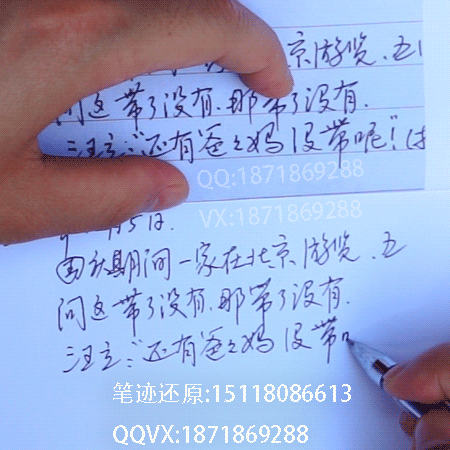 京游览.五
问这带了没有.那带了没有.
汪立:“还有爸々妈没带呢!”
QQ:1871869288
VX:1871869288
月5日.
国庆期间一家在北京游览.五
问这带了没有.那带了没有.
汪立:“还有爸々妈没带
笔迹还原:15118086613
QQVX:1871869288